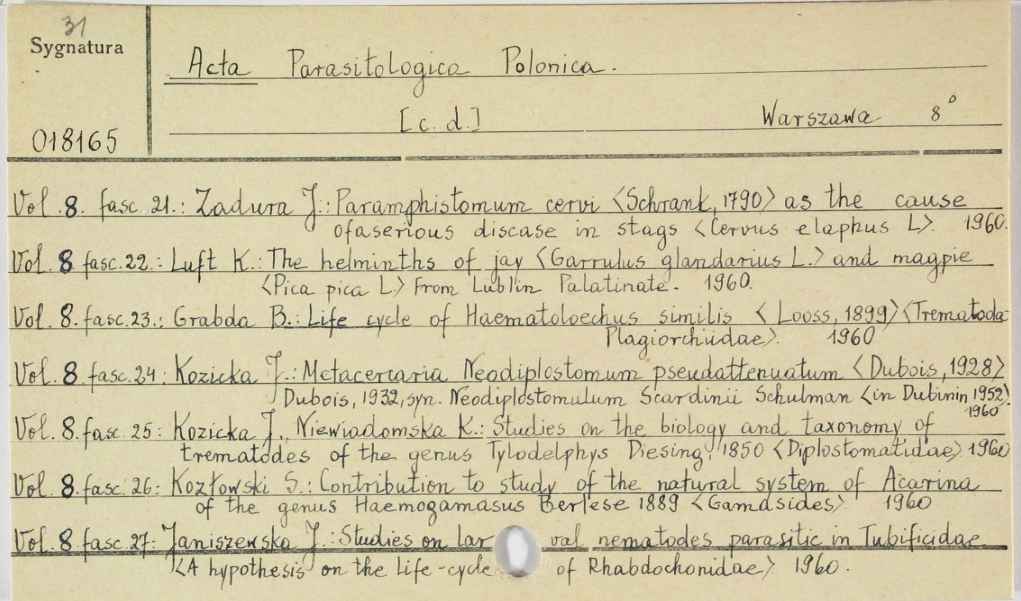 31
Sygnatura
Acta Parasitologica Polonica.
[c. d.] Warszawa 8°
018165
Vol. 8. fasc. 21.: Zadura J.: Paramphistomum cervi <Schrank, 1790> as the cause
ofaserious discase in stags <Cervus elaphus L>. 1960.
Vol. 8 fasc. 22.: Luft K.: The helminths of jay <Garrulus glandarius L.> and magpie
<Pica pica L> from Lublin Palatinate. 1960.
Vol. 8. fasc. 23.: Grabda B.: Life cycle of Haematoloechus similis <Looss, 1899> <Trematoda
Plagiorchiidae>. 1960
Vol. 8 fasc. 24: Kozicka J.: Metacercaria Neodiplostomum pseudattenuatum <Dubois, 1928>
Dubois, 1932, syn. Neodiplostomulum Scardinii Schulman <in Dubinin 1952>.
1960
Vol. 8. fasc 25: Kozicka J., Niewiadomska K.: Studies on the biology and taxonomy of
trematodes of the genus Tylodelphys Diesing, 1850 <Diplostomatidae> 1960
Vol. 8. fasc. 26: Kozłowski S.: Contribution to study of the natural system of Acarina
of the genus Haemogamasus Berlese 1889 <Gamasides> 1960
Vol. 8 fasc. 27: Janiszewska J.: Studies on larval nematodes parasitic in Tubificidae
<A hypothesis on the life-cycle of Rhabdochonidae> 1960.